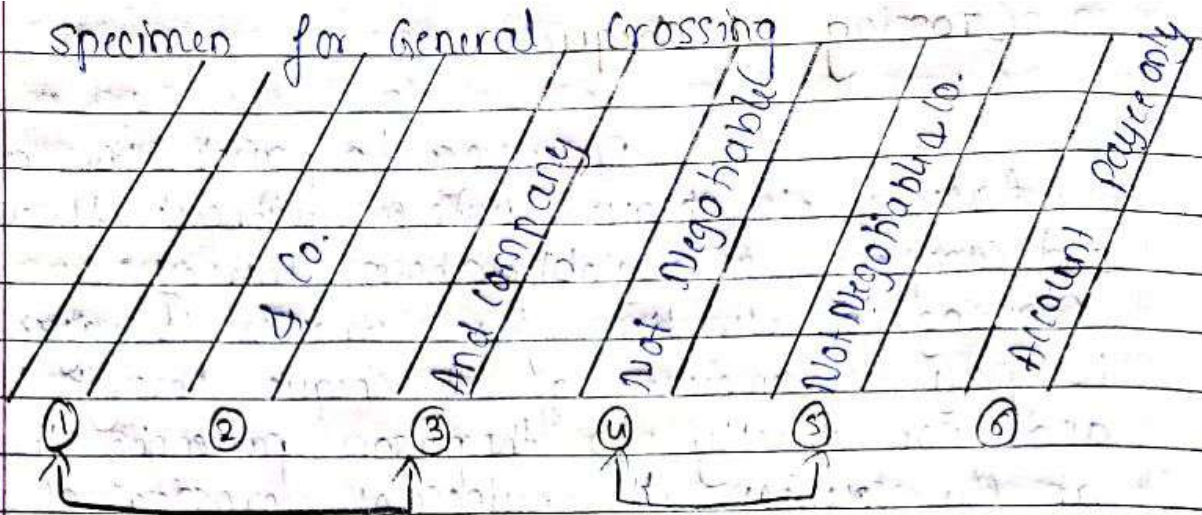 Specimen for General Crossing
& Co.
And Company
Not Negotiable
Not Negotiable & Co.
Account Payee only
① ② ③ ④ ⑤ ⑥